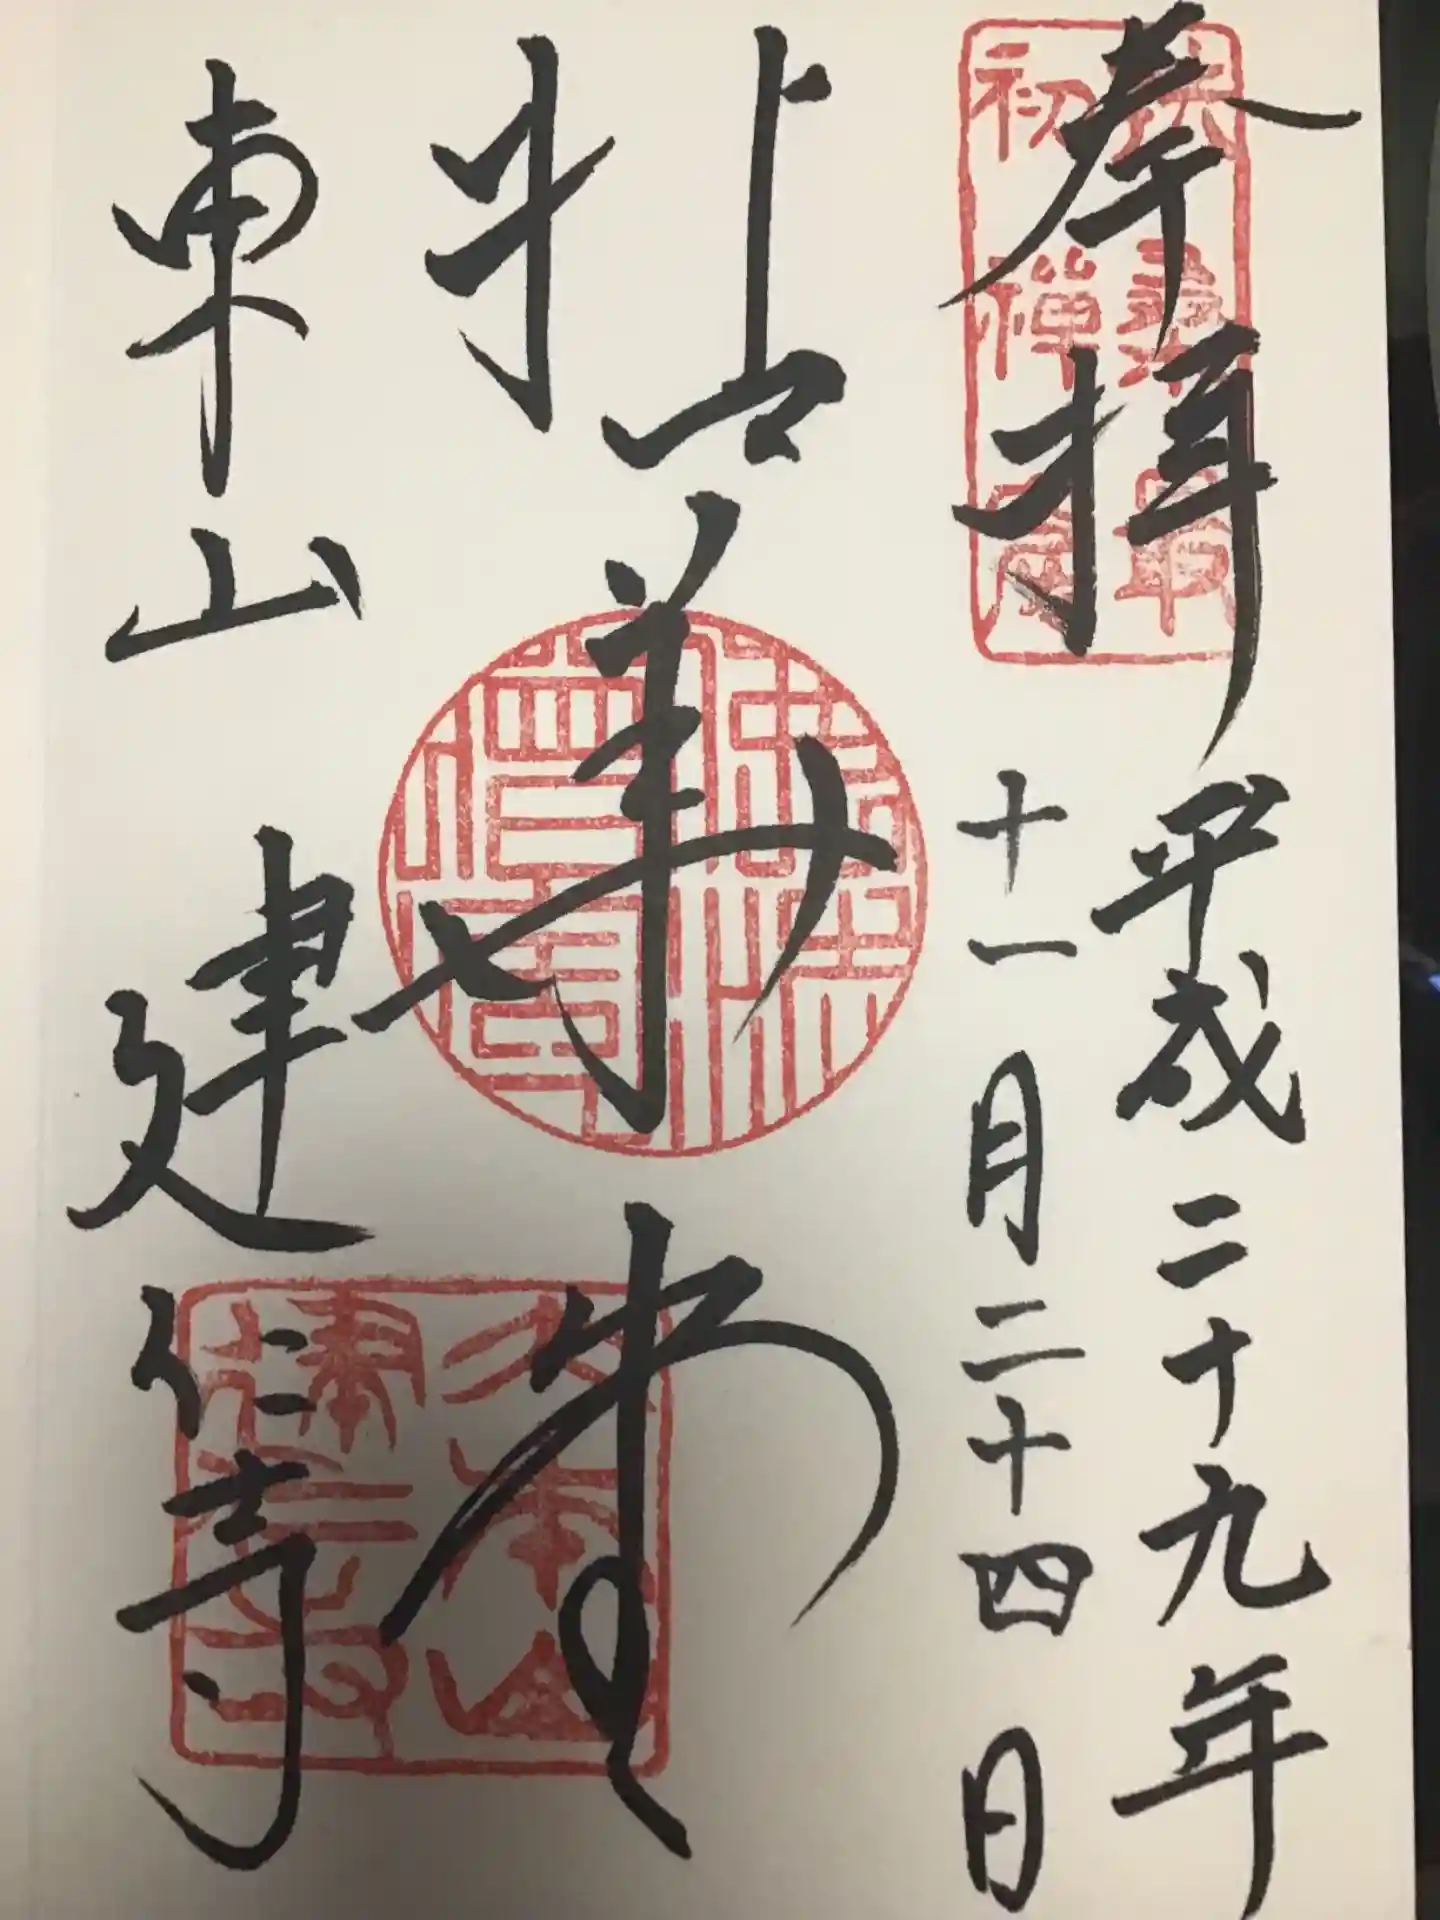 奉拝
平成二十九年
十一月二十四日
拈華堂
東山
建仁寺
扶桑最
初禅窟
東山
建仁寺